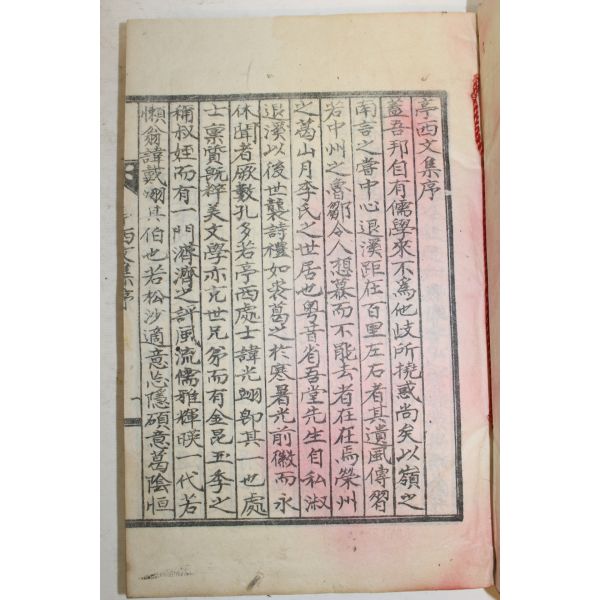 亭西文集序
蓋吾邦自有儒學來不為他歧所撓惑尚矣以嶺之
南言之當中心退溪距在百里左右者其遺風傳習
若中州之魯鄒令人想慕而不能去者在在焉榮州
之葛山月李氏之世居也粤昔省吾堂先生自私淑
退溪以後世襲詩禮如裘葛之於寒暑光前徽而永
休聞者厥數孔多若亭西處士諱光翊卽其一也處
士稟質旣粹美文學亦尤世兄弟而有金昆玉季之
稱叔姪而有一門濟濟之評風流儒雅輝暎一代若
懶翁諱戴翊其伯也若松沙適意忘隱碩意葛陰恒
亭西文集序
一